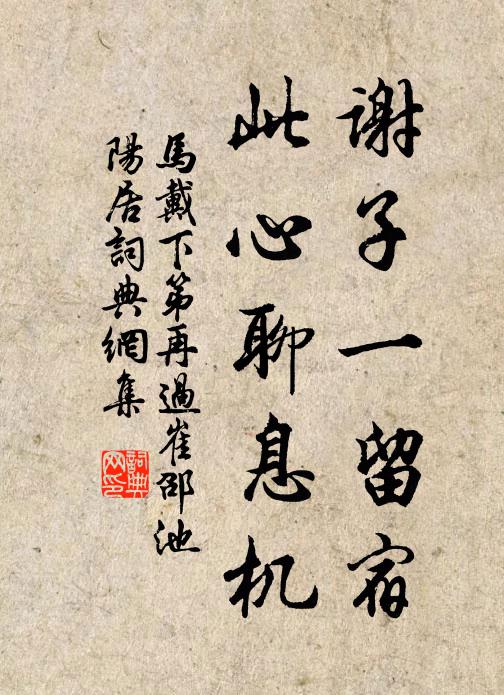 謝子一留宿
此心聊息机
馬戴下第再過崔邵池
陽居詞典網集
詞典網印